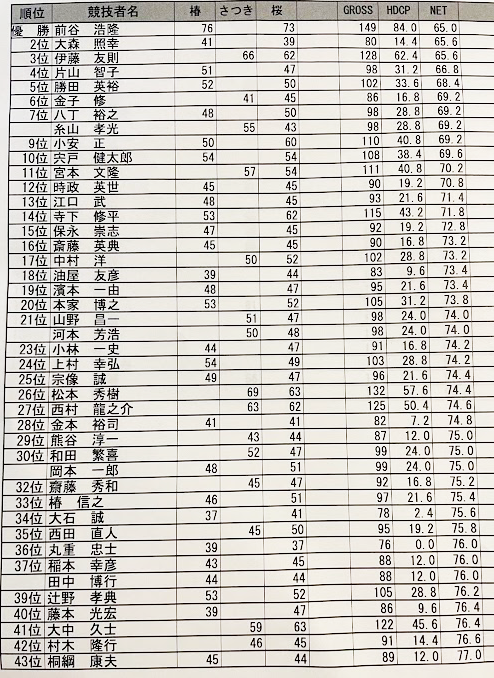 順位 競技者名 椿 さつき 桜 GROSS HDCP NET
優 勝 前谷 浩隆 76 73 149 84.0 65.0
2位 大森 照幸 41 39 80 14.4 65.6
3位 伊藤 友則 66 62 128 62.4 65.6
4位 片山 智子 51 47 98 31.2 66.8
5位 勝田 英裕 52 50 102 33.6 68.4
6位 金子 修 41 45 86 16.8 69.2
7位 八丁 裕之 48 50 98 28.8 69.2
糸山 孝光 55 43 98 28.8 69.2
9位 小安 正 50 60 110 40.8 69.2
10位 宍戸 健太郎 54 54 108 38.4 69.6
11位 宮本 文隆 57 54 111 40.8 70.2
12位 時政 英世 45 45 90 19.2 70.8
13位 江口 武 48 45 93 21.6 71.4
14位 寺下 修平 53 62 115 43.2 71.8
15位 保永 崇志 47 45 92 19.2 72.8
16位 斎藤 英典 45 45 90 16.8 73.2
17位 中村 洋 50 52 102 28.8 73.2
18位 油屋 友彦 39 44 83 9.6 73.4
19位 濱本 一由 48 47 95 21.6 73.4
20位 本家 博之 53 52 105 31.2 73.8
21位 山野 昌一 51 47 98 24.0 74.0
河本 芳浩 50 48 98 24.0 74.0
23位 小林 一史 44 47 91 16.8 74.2
24位 上村 幸弘 54 49 103 28.8 74.2
25位 宗像 誠 49 47 96 21.6 74.4
26位 松本 秀樹 69 63 132 57.6 74.4
27位 西村 龍之介 63 62 125 50.4 74.6
28位 金本 裕司 41 41 82 7.2 74.8
29位 熊谷 淳一 43 44 87 12.0 75.0
30位 和田 繁喜 52 47 99 24.0 75.0
岡本 一郎 48 51 99 24.0 75.0
32位 齋藤 秀和 45 47 92 16.8 75.2
33位 椿 信之 46 51 97 21.6 75.4
34位 大石 誠 37 41 78 2.4 75.6
35位 西田 直人 45 50 95 19.2 75.8
36位 丸重 忠士 39 37 76 0.0 76.0
37位 稲本 幸彦 43 45 88 12.0 76.0
田中 博行 44 44 88 12.0 76.0
39位 辻野 孝典 53 52 105 28.8 76.2
40位 藤本 光宏 39 47 86 9.6 76.4
41位 大中 久士 59 63 122 45.6 76.4
42位 村木 隆行 46 45 91 14.4 76.6
43位 桐綱 康夫 45 44 89 12.0 77.0